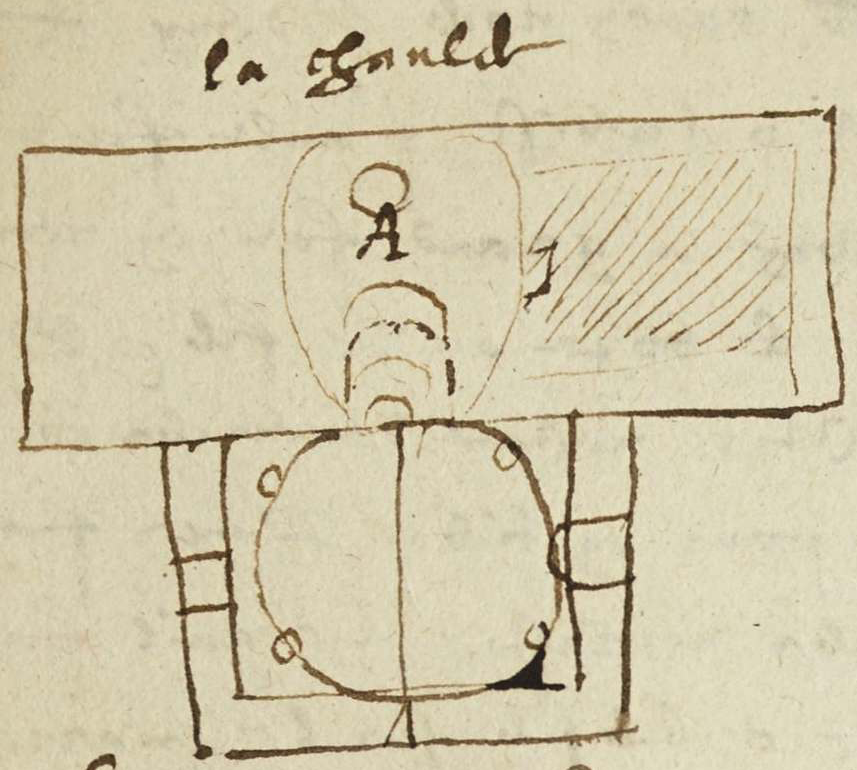 la chauld
A
J